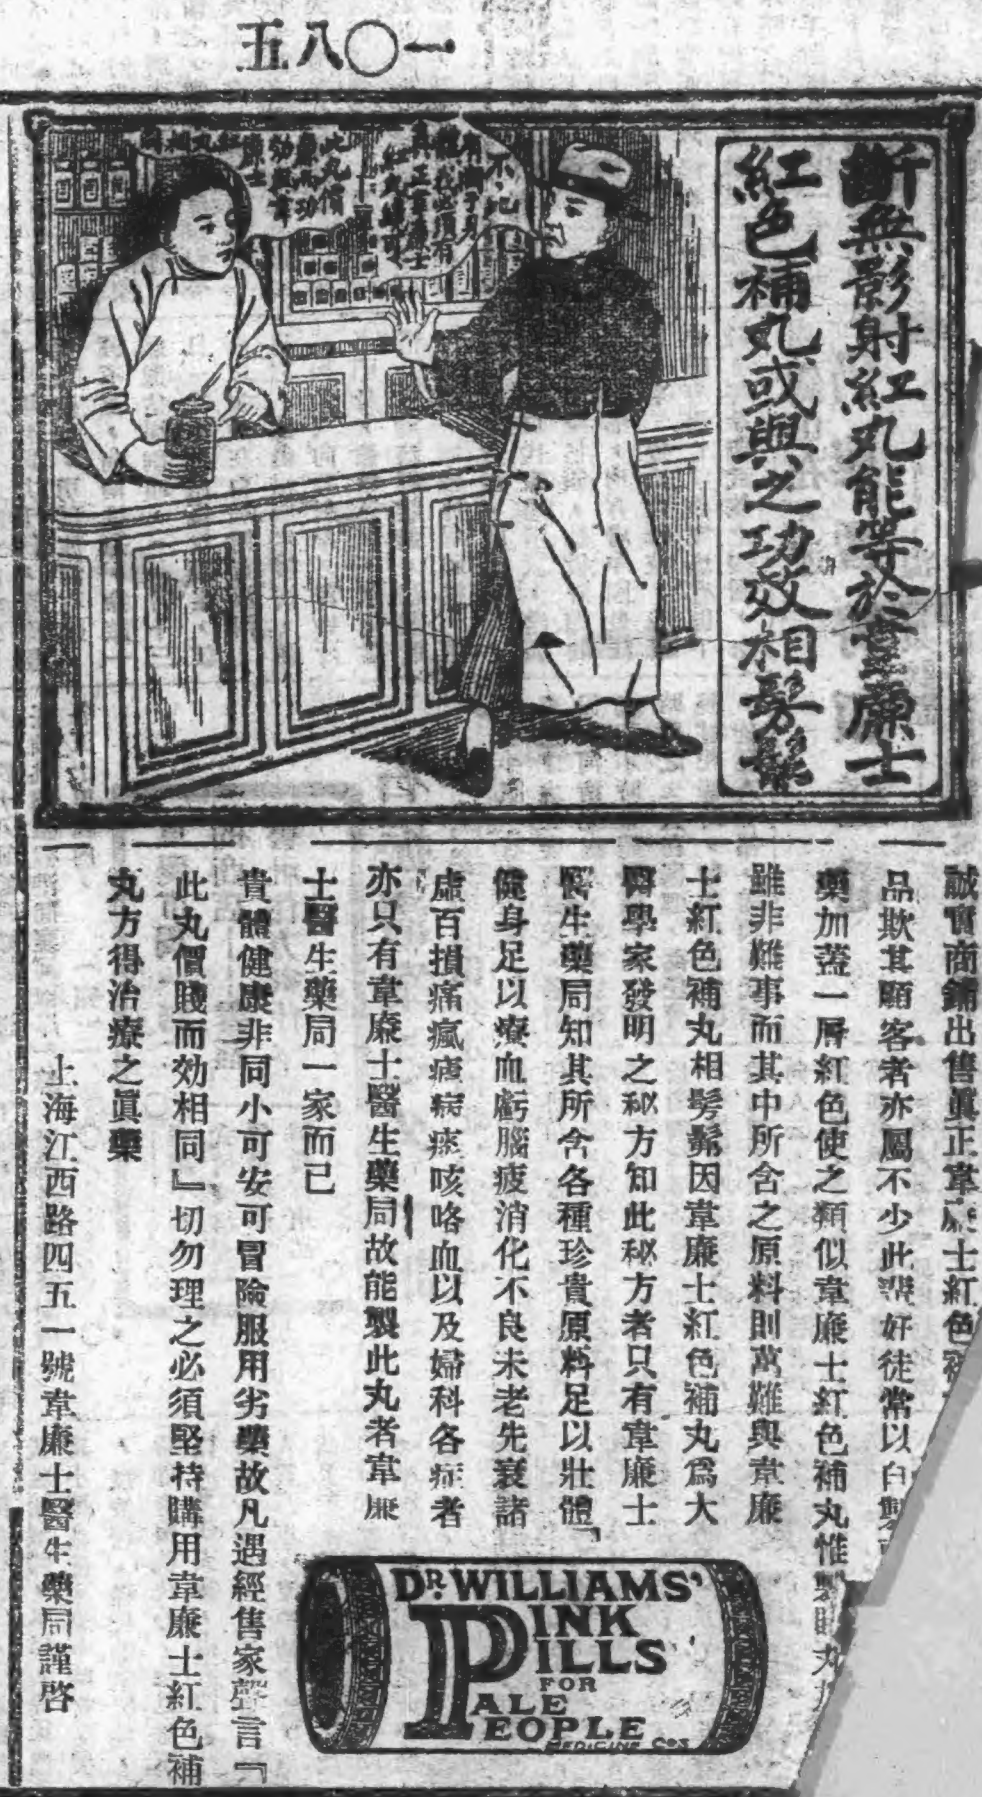 一〇八五
斷無影射紅丸能等於韋廉士
紅色補丸或與之功效相髣髴
誠實商鋪出售眞正韋廉士紅色
品欺其顧客者亦屬不少此輩奸徒常以白
藥加蓋一層紅色使之類似韋廉士紅色補丸惟
雖非難事而其中所含之原料則萬難與韋廉
士紅色補丸相髣髴因韋廉士紅色補丸爲大
醫學家發明之秘方知此秘方者只有韋廉士
醫生藥局知其所含各種珍貴原料足以壯體
健身足以療血虧腦疲消化不良未老先衰諸
虛百損痛瘋瘧病痰咳咯血以及婦科各症者
亦只有韋廉士醫生藥局故能製此丸者韋廉
士醫生藥局一家而已
貴體健康非同小可安可冒險服用劣藥故凡遇經售家聲言「
此丸價賤而効相同」切勿理之必須堅持購用韋廉士紅色補
丸方得治療之眞藥
上海江西路四五一號韋廉士醫生藥局謹啓
DR WILLIAMS'
PINK
PILLS
FOR
PALE
PEOPLE
MEDICINE Co's